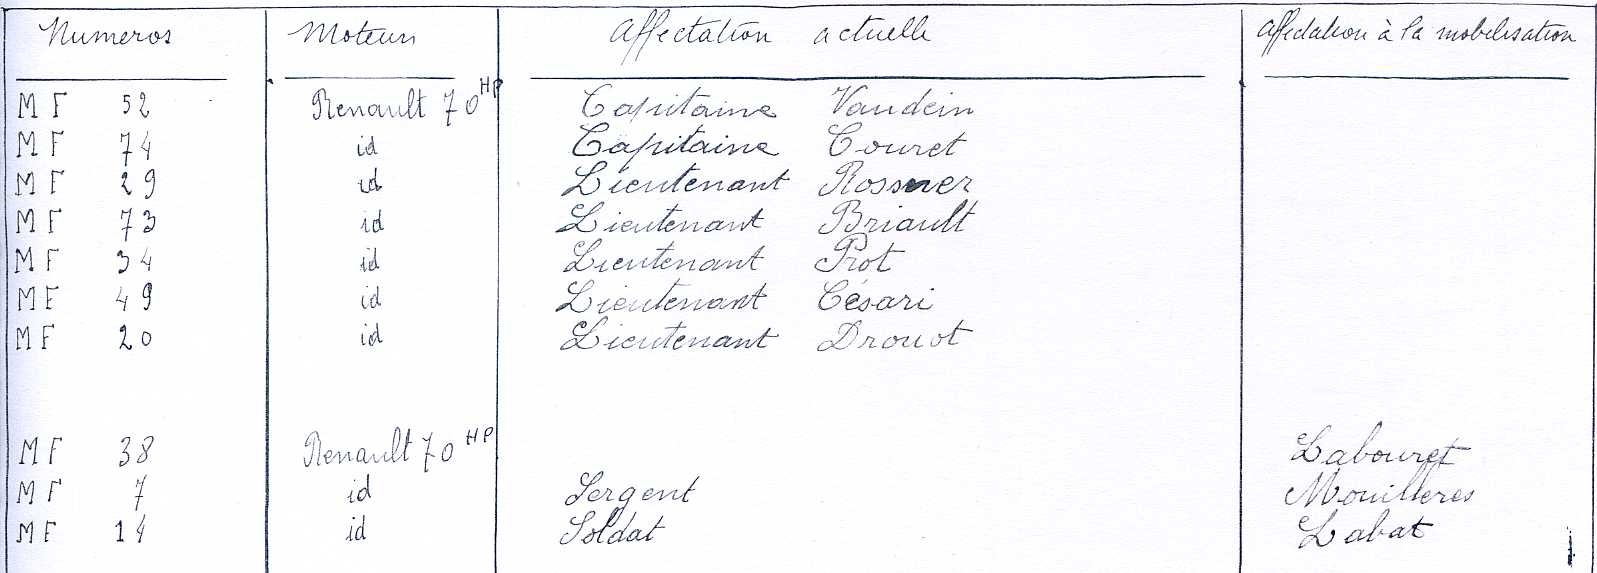 Numeros Moteur Affectation actuelle Affectation à la mobilisation
MF 52 Renault 70 HP Capitaine Vaudein
MF 74 id Capitaine Couret
MF 29 id Lieutenant Rossner
MF 73 id Lieutenant Briault
MF 34 id Lieutenant Prot
MF 49 id Lieutenant Césari
MF 20 id Lieutenant Drouot
MF 38 Renault 70 HP Labouret
MF 7 id Sergent Mouilleres
MF 14 id Soldat Labat